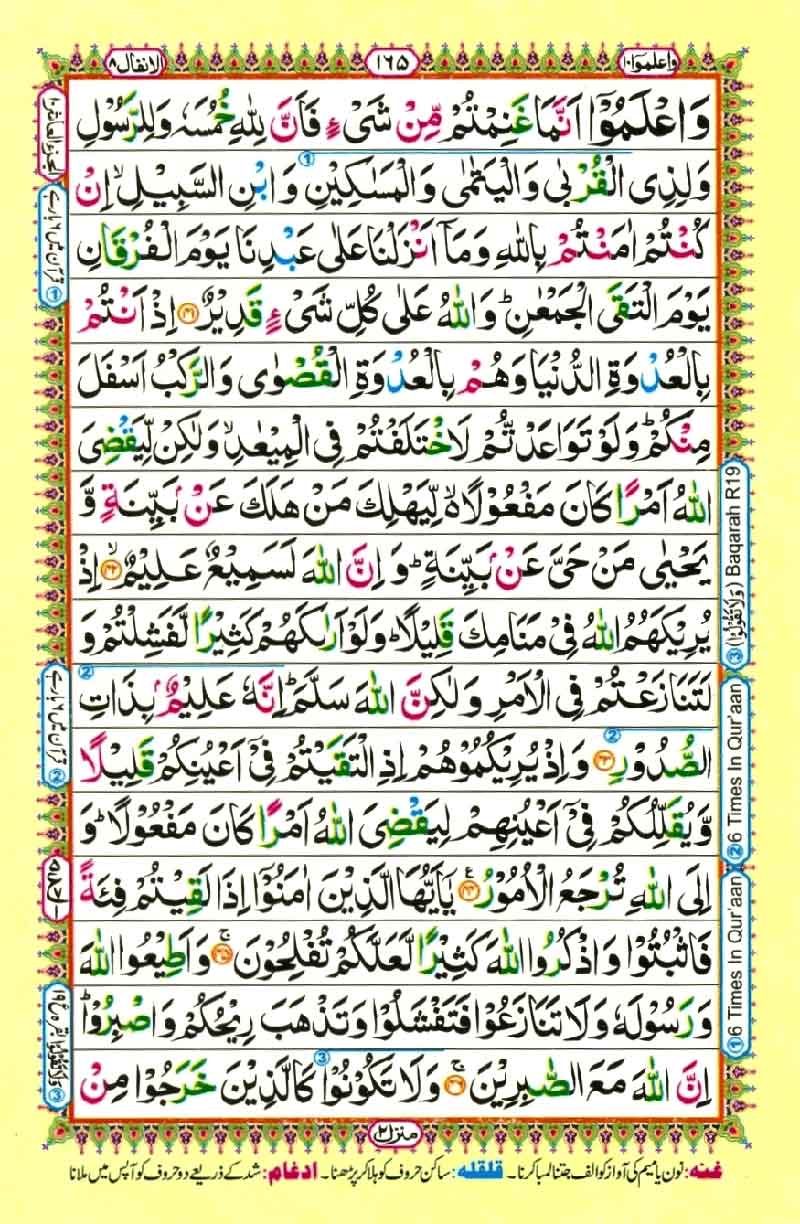 واعلموا ۱۰
۱۶۵
الانفال ۸
وَاعْلَمُوْۤا اَنَّمَا غَنِمْتُمْ مِّنْ شَیْءٍ فَاَنَّ لِلّٰهِ خُمُسَهٗ وَلِلرَّسُوْلِ
وَلِذِی الْقُرْبٰی وَالْیَتٰمٰی وَالْمَسٰكِیْنِ وَابْنِ السَّبِیْلِ ۙ اِنْ
كُنْتُمْ اٰمَنْتُمْ بِاللّٰهِ وَمَاۤ اَنْزَلْنَا عَلٰی عَبْدِنَا یَوْمَ الْفُرْقَانِ
یَوْمَ الْتَقَی الْجَمْعٰنِ ؕ وَاللّٰهُ عَلٰی كُلِّ شَیْءٍ قَدِیْرٌ ۴۱ اِذْ اَنْتُمْ
بِالْعُدْوَةِ الدُّنْیَا وَهُمْ بِالْعُدْوَةِ الْقُصْوٰی وَالرَّكْبُ اَسْفَلَ
مِنْكُمْ ؕ وَلَوْ تَوَاعَدْتُّمْ لَاخْتَلَفْتُمْ فِی الْمِیْعٰدِ ۙ وَلٰكِنْ لِّیَقْضِیَ
اللّٰهُ اَمْرًا كَانَ مَفْعُوْلًا ۙ۬ لِّیَهْلِكَ مَنْ هَلَكَ عَنْۢ بَیِّنَةٍ وَّ
یَحْیٰی مَنْ حَیَّ عَنْۢ بَیِّنَةٍ ؕ وَاِنَّ اللّٰهَ لَسَمِیْعٌ عَلِیْمٌ ۴۲ اِذْ
یُرِیْكَهُمُ اللّٰهُ فِیْ مَنَامِكَ قَلِیْلًا ؕ وَلَوْ اَرٰىكَهُمْ كَثِیْرًا لَّفَشِلْتُمْ وَ
لَتَنَازَعْتُمْ فِی الْاَمْرِ وَلٰكِنَّ اللّٰهَ سَلَّمَ ؕ اِنَّهٗ عَلِیْمٌۢ بِذَاتِ
الصُّدُوْرِ ۴۳ وَاِذْ یُرِیْكُمُوْهُمْ اِذِ الْتَقَیْتُمْ فِیْۤ اَعْیُنِكُمْ قَلِیْلًا
وَّیُقَلِّلُكُمْ فِیْۤ اَعْیُنِهِمْ لِیَقْضِیَ اللّٰهُ اَمْرًا كَانَ مَفْعُوْلًا ؕ وَ
اِلَی اللّٰهِ تُرْجَعُ الْاُمُوْرُ ۴۴ یٰۤاَیُّهَا الَّذِیْنَ اٰمَنُوْۤا اِذَا لَقِیْتُمْ فِئَةً
فَاثْبُتُوْا وَاذْكُرُوا اللّٰهَ كَثِیْرًا لَّعَلَّكُمْ تُفْلِحُوْنَ ۴۵ وَاَطِیْعُوا اللّٰهَ
وَرَسُوْلَهٗ وَلَا تَنَازَعُوْا فَتَفْشَلُوْا وَتَذْهَبَ رِیْحُكُمْ وَاصْبِرُوْا ؕ
اِنَّ اللّٰهَ مَعَ الصّٰبِرِیْنَ ۴۶ وَلَا تَكُوْنُوْا كَالَّذِیْنَ خَرَجُوْا مِنْ
منزل ۲
الجزء العاشر ۱۰
① قرآن میں ۶ بار ہے
② قرآن میں ۶ بار ہے
③ Baqarah R19 (وَلَا تَقُوْلُوْا)
② 6 Times In Qur'aan
① 6 Times In Qur'aan
غنہ: نون یا میم کی آواز کو الف جتنا لمبا کرنا۔ قلقلہ: ساکن حروف کو ہلا کر پڑھنا۔ ادغام: شد کے ذریعے دو حروف کو آپس میں ملانا